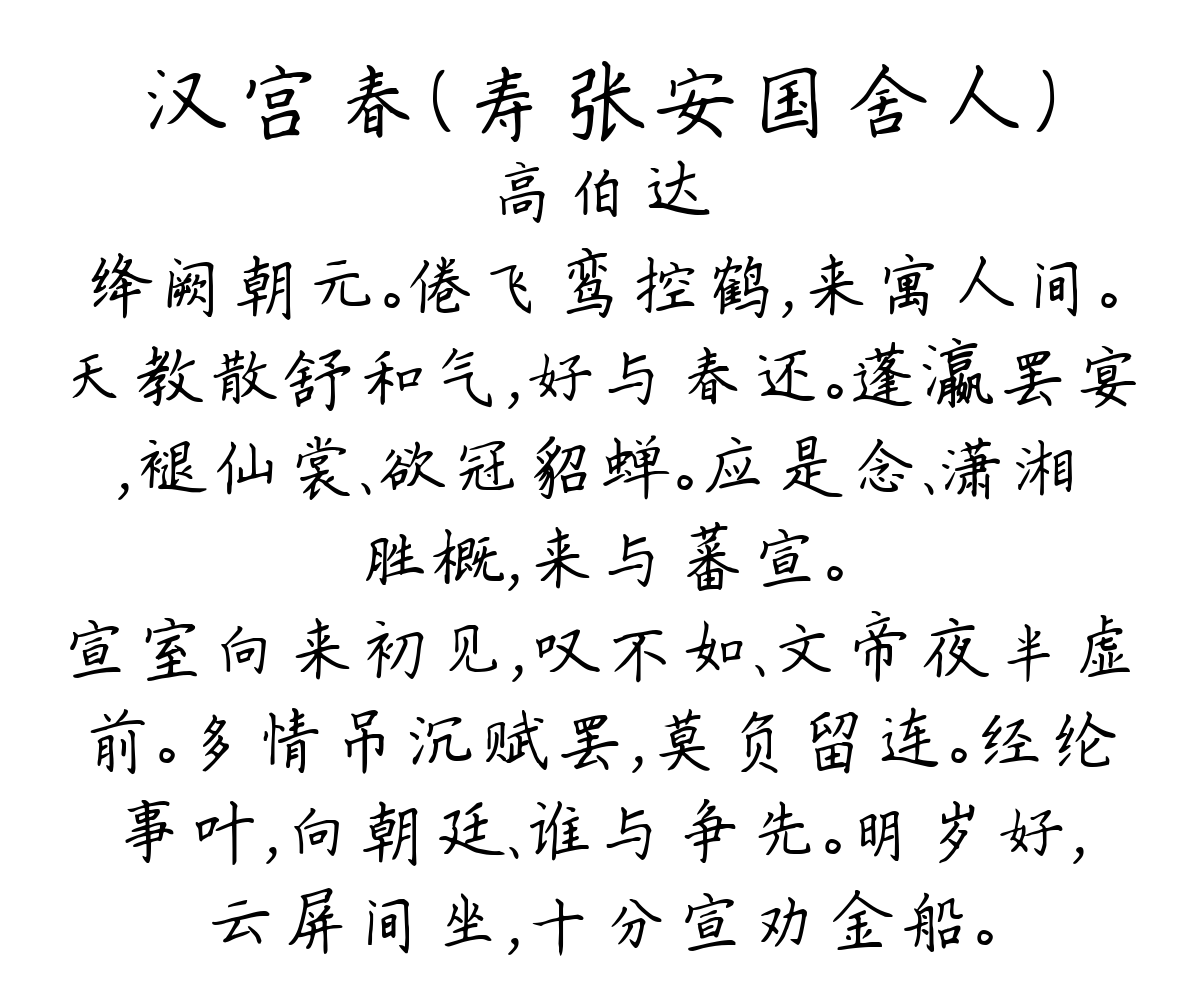 汉宫春(寿张安国舍人)
高伯达
绛阙朝元。倦飞鸾控鹤,来寓人间。
天教散舒和气,好与春还。蓬瀛罢宴
,褪仙裳、欲冠貂蝉。应是念、潇湘
胜概,来与蕃宣。
宣室向来初见,叹不如、文帝夜半虚
前。多情吊沉赋罢,莫负留连。经纶
事叶,向朝廷、谁与争先。明岁好,
云屏间坐,十分宣劝金船。